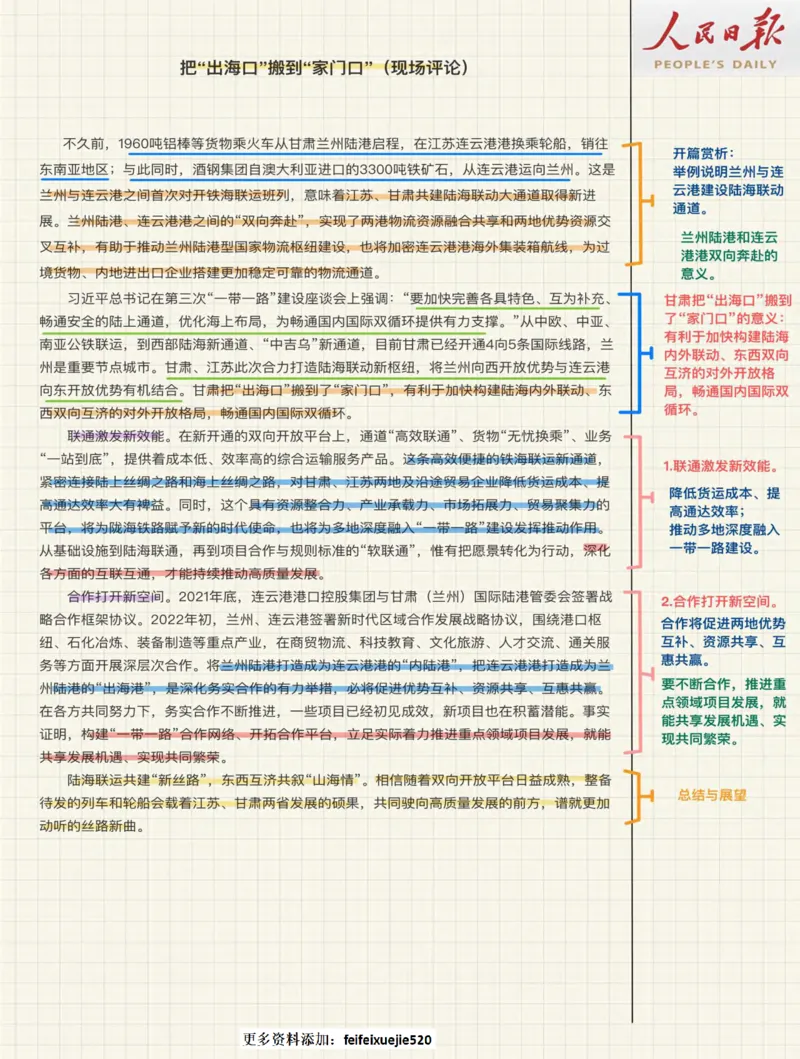 人民日报
PEOPLE'S DAILY
把“出海口”搬到“家门口”（现场评论）
不久前，1960吨铝棒等货物乘火车从甘肃兰州陆港启程，在江苏连云港港换乘轮船，销往
东南亚地区；与此同时，酒钢集团自澳大利亚进口的3300吨铁矿石，从连云港运向兰州。这是
兰州与连云港之间首次对开铁海联运班列，意味着江苏、甘肃共建陆海联动大通道取得新进
展。兰州陆港、连云港港之间的“双向奔赴”，实现了两港物流资源融合共享和两地优势资源交
叉互补，有助于推动兰州陆港型国家物流枢纽建设，也将加密连云港港海外集装箱航线，为过
境货物、内地进出口企业搭建更加稳定可靠的物流通道。
习近平总书记在第三次“一带一路”建设座谈会上强调：“要加快完善各具特色、互为补充、
畅通安全的陆上通道，优化海上布局，为畅通国内国际双循环提供有力支撑。”从中欧、中亚、
南亚公铁联运，到西部陆海新通道、“中吉乌”新通道，目前甘肃已经开通4向5条国际线路，兰
州是重要节点城市。甘肃、江苏此次合力打造陆海联动新枢纽，将兰州向西开放优势与连云港
向东开放优势有机结合。甘肃把“出海口”搬到了“家门口”，有利于加快构建陆海内外联动、东
西双向互济的对外开放格局，畅通国内国际双循环。
联通激发新效能。在新开通的双向开放平台上，通道“高效联通”、货物“无忧换乘”、业务
“一站到底”，提供着成本低、效率高的综合运输服务产品。这条高效便捷的铁海联运新通道，
紧密连接陆上丝绸之路和海上丝绸之路，对甘肃、江苏两地及沿途贸易企业降低货运成本、提
高通达效率大有裨益。同时，这个具有资源整合力、产业承载力、市场拓展力、贸易聚集力的
平台，将为陇海铁路赋予新的时代使命，也将为多地深度融入“一带一路”建设发挥推动作用。
从基础设施到陆海联通，再到项目合作与规则标准的“软联通”，惟有把愿景转化为行动，深化
各方面的互联互通，才能持续推动高质量发展。
合作打开新空间。2021年底，连云港港口控股集团与甘肃（兰州）国际陆港管委会签署战
略合作框架协议。2022年初，兰州、连云港签署新时代区域合作发展战略协议，围绕港口枢
纽、石化冶炼、装备制造等重点产业，在商贸物流、科技教育、文化旅游、人才交流、通关服
务等方面开展深层次合作。将兰州陆港打造成为连云港港的“内陆港”，把连云港港打造成为兰
州陆港的“出海港”，是深化务实合作的有力举措，必将促进优势互补、资源共享、互惠共赢。
在各方共同努力下，务实合作不断推进，一些项目已经初见成效，新项目也在积蓄潜能。事实
证明，构建“一带一路”合作网络、开拓合作平台，立足实际着力推进重点领域项目发展，就能
共享发展机遇、实现共同繁荣。
陆海联运共建“新丝路”，东西互济共叙“山海情”。相信随着双向开放平台日益成熟，整备
待发的列车和轮船会载着江苏、甘肃两省发展的硕果，共同驶向高质量发展的前方，谱就更加
动听的丝路新曲。
开篇赏析：
举例说明兰州与连
云港建设陆海联动
通道。
兰州陆港和连云
港港双向奔赴的
意义。
甘肃把“出海口”搬到
了“家门口”的意义：
有利于加快构建陆海
内外联动、东西双向
互济的对外开放格
局，畅通国内国际双
循环。
1.联通激发新效能。
降低货运成本、提
高通达效率；
推动多地深度融入
一带一路建设。
2.合作打开新空间。
合作将促进两地优势
互补、资源共享、互
惠共赢。
要不断合作，推进重
点领域项目发展，就
能共享发展机遇、实
现共同繁荣。
总结与展望
更多资料添加：feifeixuejie520